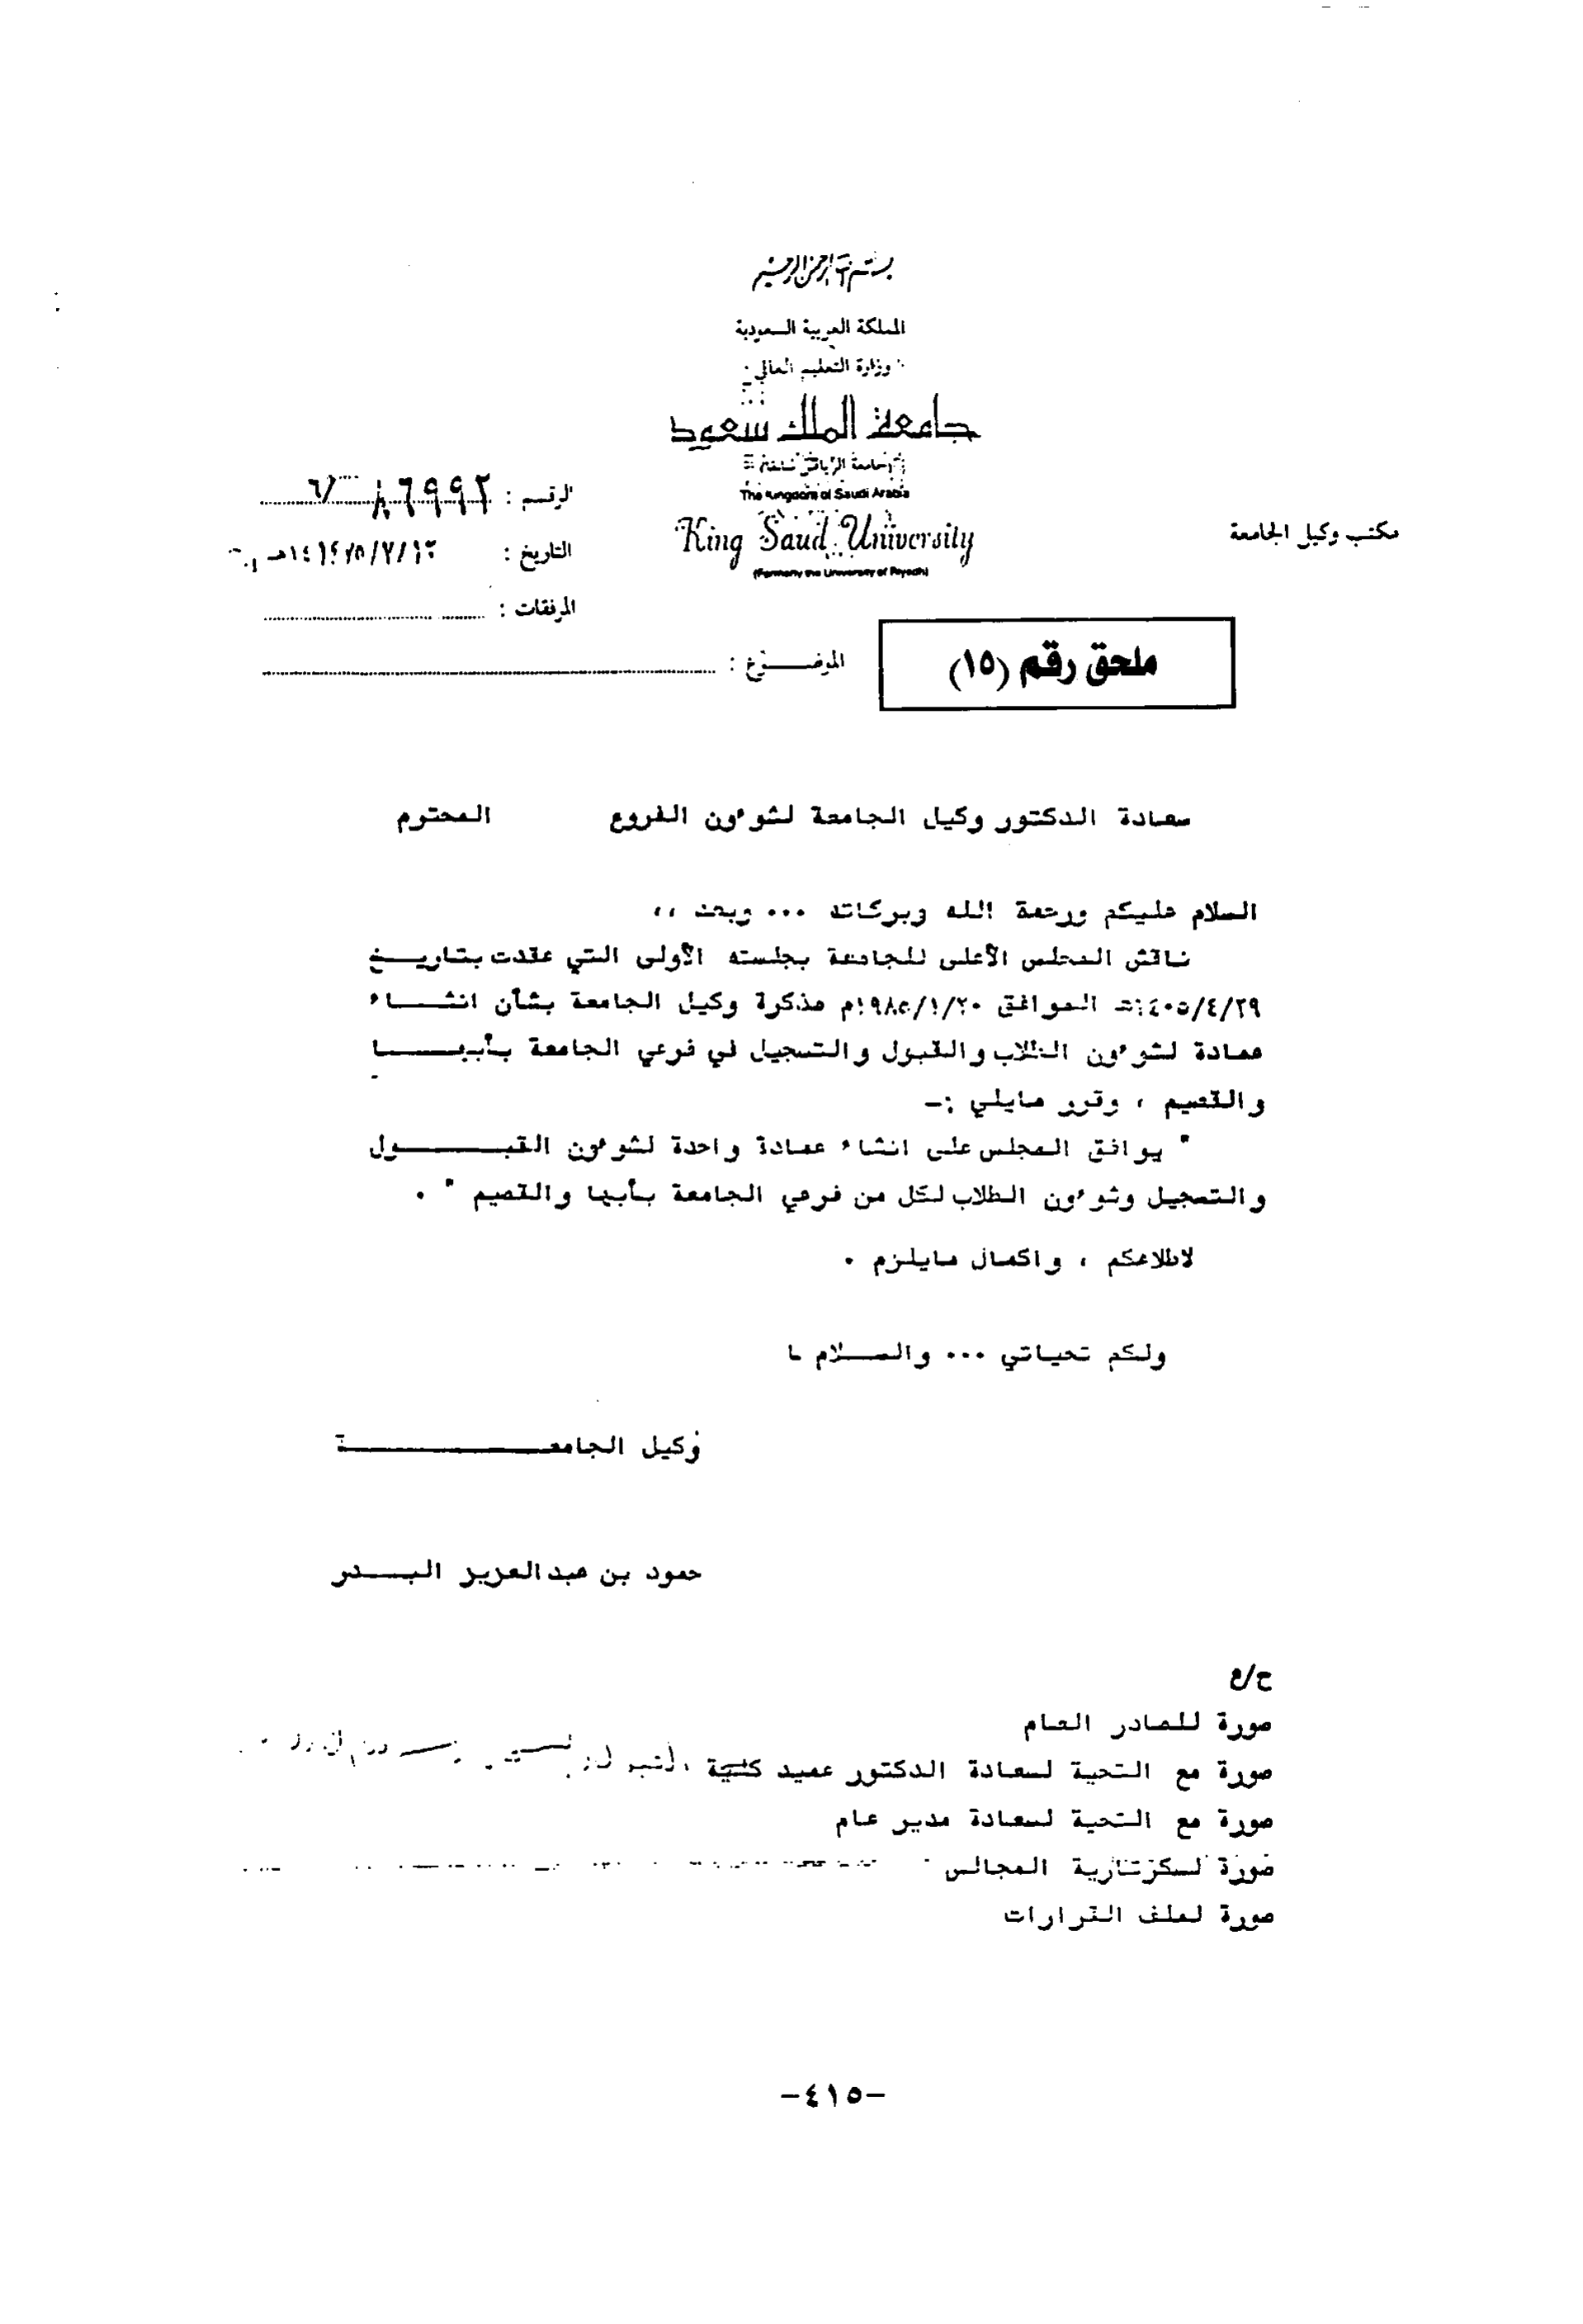 بسم الله الرحمن الرحيم
المملكة العربية السعودية
وزارة التعليم العالي
جامعة الملك سعود
The Kingdom of Saudi Arabia
King Saud University
(Formerly the University of Riyadh)
مكتب وكيل الجامعة
الرقم :
التاريخ :
المرفقات :
الموضـــوع :
ملحق رقم (١٥)
سعادة الدكتور وكيل الجامعة لشوءون الفروع المحترم
السلام عليكم ورحمة الله وبركاته ... وبعد ،،
ناقش المجلس الأعلى للجامعة بجلسته الأولى التي عقدت بتاريــخ
١٤٠٥/٤/٢٩هـ الموافق ١٩٨٥/١/٢٠م مذكرة وكيل الجامعة بشأن انشــاء
عمادة لشوءون الطلاب والقبول والتسجيل في فرعي الجامعة بأبهــا
والقصيم ، وقرر مايلي :-
" يوافق المجلس على انشاء عمادة واحدة لشوءون القبــــول
والتسجيل وشوءون الطلاب لكل من فرعي الجامعة بأبها والقصيم " .
لاطلاعكم ، واكمال مايلزم .
ولكم تحياتي ... والســلام
وكيل الجامعــــــــة
حمود بن عبدالعزيز البــدر
ح/ع
صورة للصادر العام
صورة مع التحية لسعادة الدكتور عميد كلية
صورة مع التحية لسعادة مدير عام
صورة لسكرتارية المجالس
صورة لملف القرارات
-٤١٥-